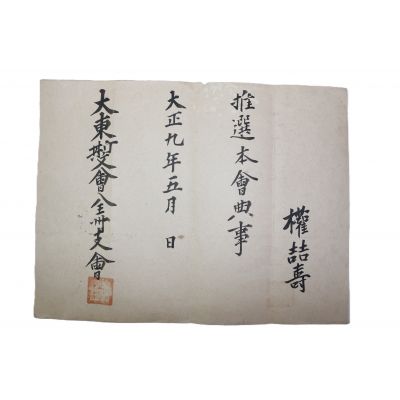 權喆壽
推選本會典事
大正九年五月 日
大東斯文會全州支會